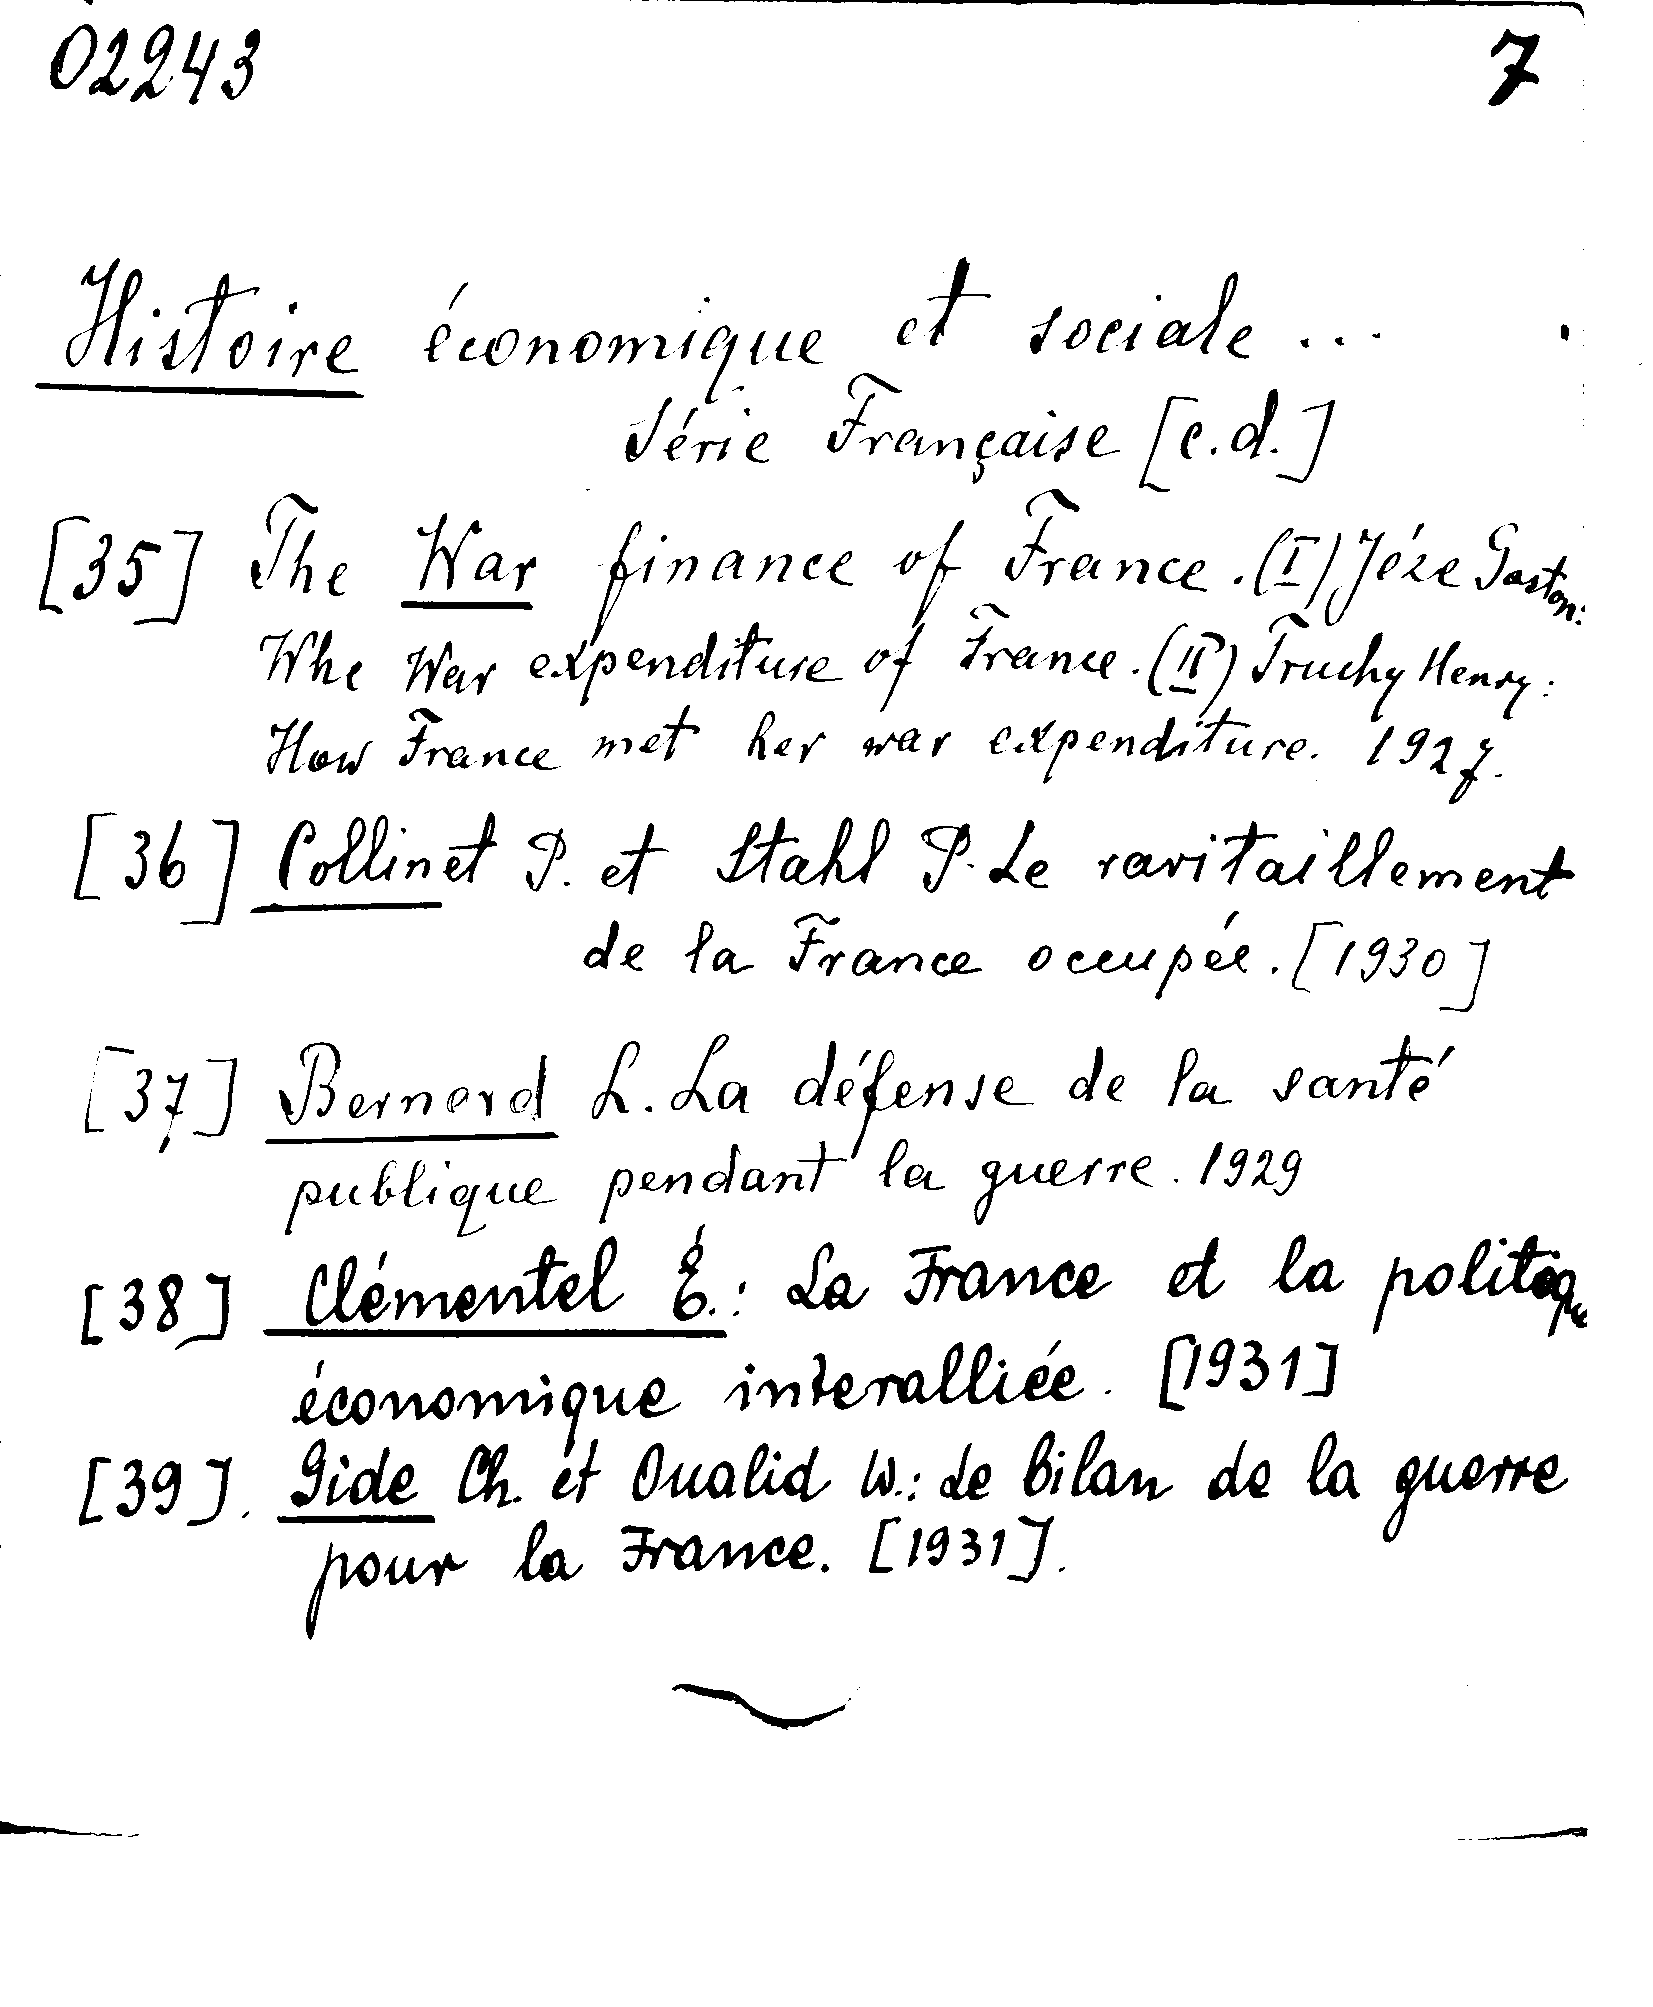 02243 7
Histoire économique et sociale ...
Série Française [c.d.]
[35] The War finance of France. (I) Jéze Gaston:
Whe War expenditure of France. (II) Truchy Henry:
How France met her war expenditure. 1927.
[36] Collinet P. et Stahl P. Le ravitaillement
de la France occupée. [1930]
[37] Bernard L. La défense de la santé
publique pendant la guerre. 1929
[38] Clémentel É.: La France et la politique
économique interalliée. [1931]
[39]. Gide Ch. et Oualid W.: Le bilan de la guerre
pour la France. [1931].